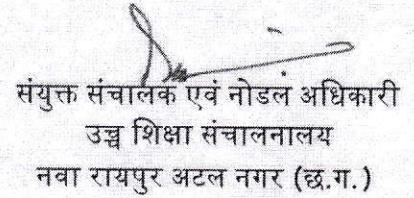 संयुक्त संचालक एवं नोडल अधिकारी
उच्च शिक्षा संचालनालय
नवा रायपुर अटल नगर (छ.ग.)